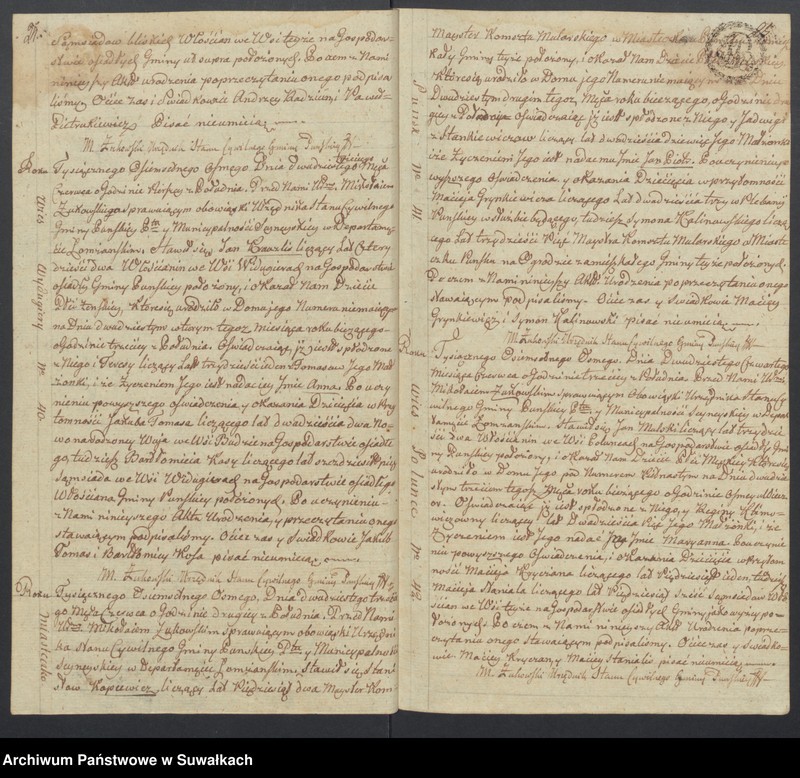 Sąmsiadow bliskich Włoscian we Wsi teyże na Gospodar-
stwie osiadłych Gminy ut supra położonych. Poczem z Nami
ninieyszy Akt urodzenia po przeczytaniu onego podpisa-
liśmy. Ociec zas i Swiadkowie Andrzey
Pietrukiewicz Pisać nieumieią
M. Żukowski Urzędnik Stanu Cywilnego Gminy Puńskiy
Roku Tysiącznego Osmsetnego Osmego Dnia dwudziestego trzeciego Mca
Czerwca o Godzinie z Południa. Przed Nami Mikołaiem
Żukowskim sprawuiącym obowiąski Urzędnika Stanu Cywilnego
Gminy Puńskiey Ptu y Municypalności Seynyskiey w Departamę-
cie Łomżanskim. Stawił się Jan liczący lat Cztery
dzieści dwa Włościanin we Wsi Widugierach na Gospodarstwie
osiadły Gminy Puńskiey położony, i okazał Nam Dziecie
Płci Żeńskiey, ktore się urodziło w Domu jego Numeru niemaiącym
na Dniu dwudziestym wtorym tegoż miesiąca roku bieżącego
o Godzinie trzeciey z Południa. Oświadczaiąc jż iest spłodzone
z Niego i Teresy liczący Lat trzydzieści ieden Tomasow Jego Mał-
żonki, i że życzeniem Jego iest nadać iey Imie Anna. Po uczy-
nieniu powyższego oświadczenia y okazania Dziecięcia w Przy-
tomności Jakuba Tomasa liczącego lat dwadzieścia dwa No-
wonarodzoney Wuja we Wsi Budzie na Gospodarstwie osiadłe-
go, tudzież Bartłomieia Kosy liczącego lat szescdziesiąt
Sąmsiada we Wsi Widugierach na Gospodarstwie osiadłego
Włościana Gminy Puńskiey położonych. Po uczynieniu
z Nami ninieyszego Aktu Urodzenia, y przeczytaniu onego
stawaiącym podpisaliśmy. Ociec zas y Swiadkowie Jakub
Tomas i Bartłomiey Kosa pisać nieumieią
M. Żukowski Urzędnik Stanu Cywilnego Gminy Puńskiy
Roku Tysiącznego Osmsetnego Osmego, Dnia dwudziestego trzecie-
go Mca Czerwca o Godzinie drugiey z Południa. Przed Nami
Mikołaiem Żukowskim sprawuiącym obowiąski Urzędni-
ka Stanu Cywilnego Gminy Puńskiey Ptu y Municypalności
Seynyskiey w Departamęcie Łomżanskim. Stawił się Stani-
sław Kapcewicz liczący Lat Piędziesiąt dwa Mayster Kom-
Wieś Widugiery N. 40
Miasteczko
Mayster Komszta Mularskiego w Miasteczku
Gminy teyże położony, i okazał Nam Dziecie
ktore się urodziło w Domu jego Numeru niemaiącym
Dwudziestym drugim tegoż Mca roku bieżącego, o Godzinie dru-
giey z Południa. Oświadczaiąc jż iest spłodzone z Niego y Jadwigi
z Stankiewiczow liczący lat dwadzieścia dziewięć Jego Małżonki
i że życzeniem Jego iest nadać mu Imie Jan Piotr. Po uczynieniu po-
wyższego Oświadczenia, y okazania Dziecięcia w przytomności
Macieia Grynkiewicza liczącego lat dwadzieścia trzy w Plebanij
Puńskiey w służbie będącego, tudzież Symona Kalinowskiego liczą-
cego Lat trzydzieści Pięć Maystra Komsztu Mularskiego w Miaste-
czku Puńsku na Ogrodzie zamieszkałego Gminy teyże położonych.
Poczem z Nami ninieyszy Akt Urodzenia po przeczytaniu onego
stawaiącym podpisaliśmy. Ociec zas y Swiadkowie Maciey
Grynkiewicz i Symon Kalinowski pisać nieumieią
M. Żukowski Urzędnik Stanu Cywilnego Gminy Puńskiy
Roku Tysiącznego Osmsetnego Osmego. Dnia Dwudziestego Czwartego
Miesiąca Czerwca o Godzinie trzeciey z Południa. Przed Nami
Mikołaiem Żukowskim sprawuiącym Obowiąski Urzędnika Stanu Cy-
wilnego Gminy Puńskiey Ptu y Municypalności Seynyskiey w Depar-
tamęcie Łomżanskim. Stawił się Jan liczący Lat trzydzie-
ści dwa Włościanin we Wsi Poluncach na Gospodarstwie osiadły Gmi-
ny Puńskiey położony, i okazał Nam Dziecie Płci ktore się
urodziło w Domu Jego pod Numerem Jednastym na Dniu dwudzie-
stym trzecim tegoż Mca roku bieżącego o Godzinie Osmey Wieczo-
rem. Oświadczaiąc jż iest spłodzone z Niego, y Reginy
liczący Lat Dwadzieścia Pięć Jego Małżonki, i że
życzeniem iest Jego nadać Imie Maryanna. Po uczynie-
niu powyższego Oświadczenia, i okazania Dziecięcia w Przytom-
ności Macieia liczącego lat Piędziesiąt ieden, tudzież
Macieia Staniala liczącego lat Piędziesiąt Sześć Sąmsiadow Wło-
ścian we Wsi teyże na Gospodarstwie osiadłych Gminy jakowyż po-
łożonych. Poczem z Nami ninieyszy Akt Urodzenia po prze-
czytaniu onego stawaiącym podpisaliśmy. Ociec zas y Swiadko-
wie Maciey y Maciey Stanialis pisać nieumieią
M. Żukowski Urzędnik Stanu Cywilnego Gminy Puńskiy
Puńsk N. 41
Wieś Polunce N. 42
Archiwum Państwowe w Suwałkach